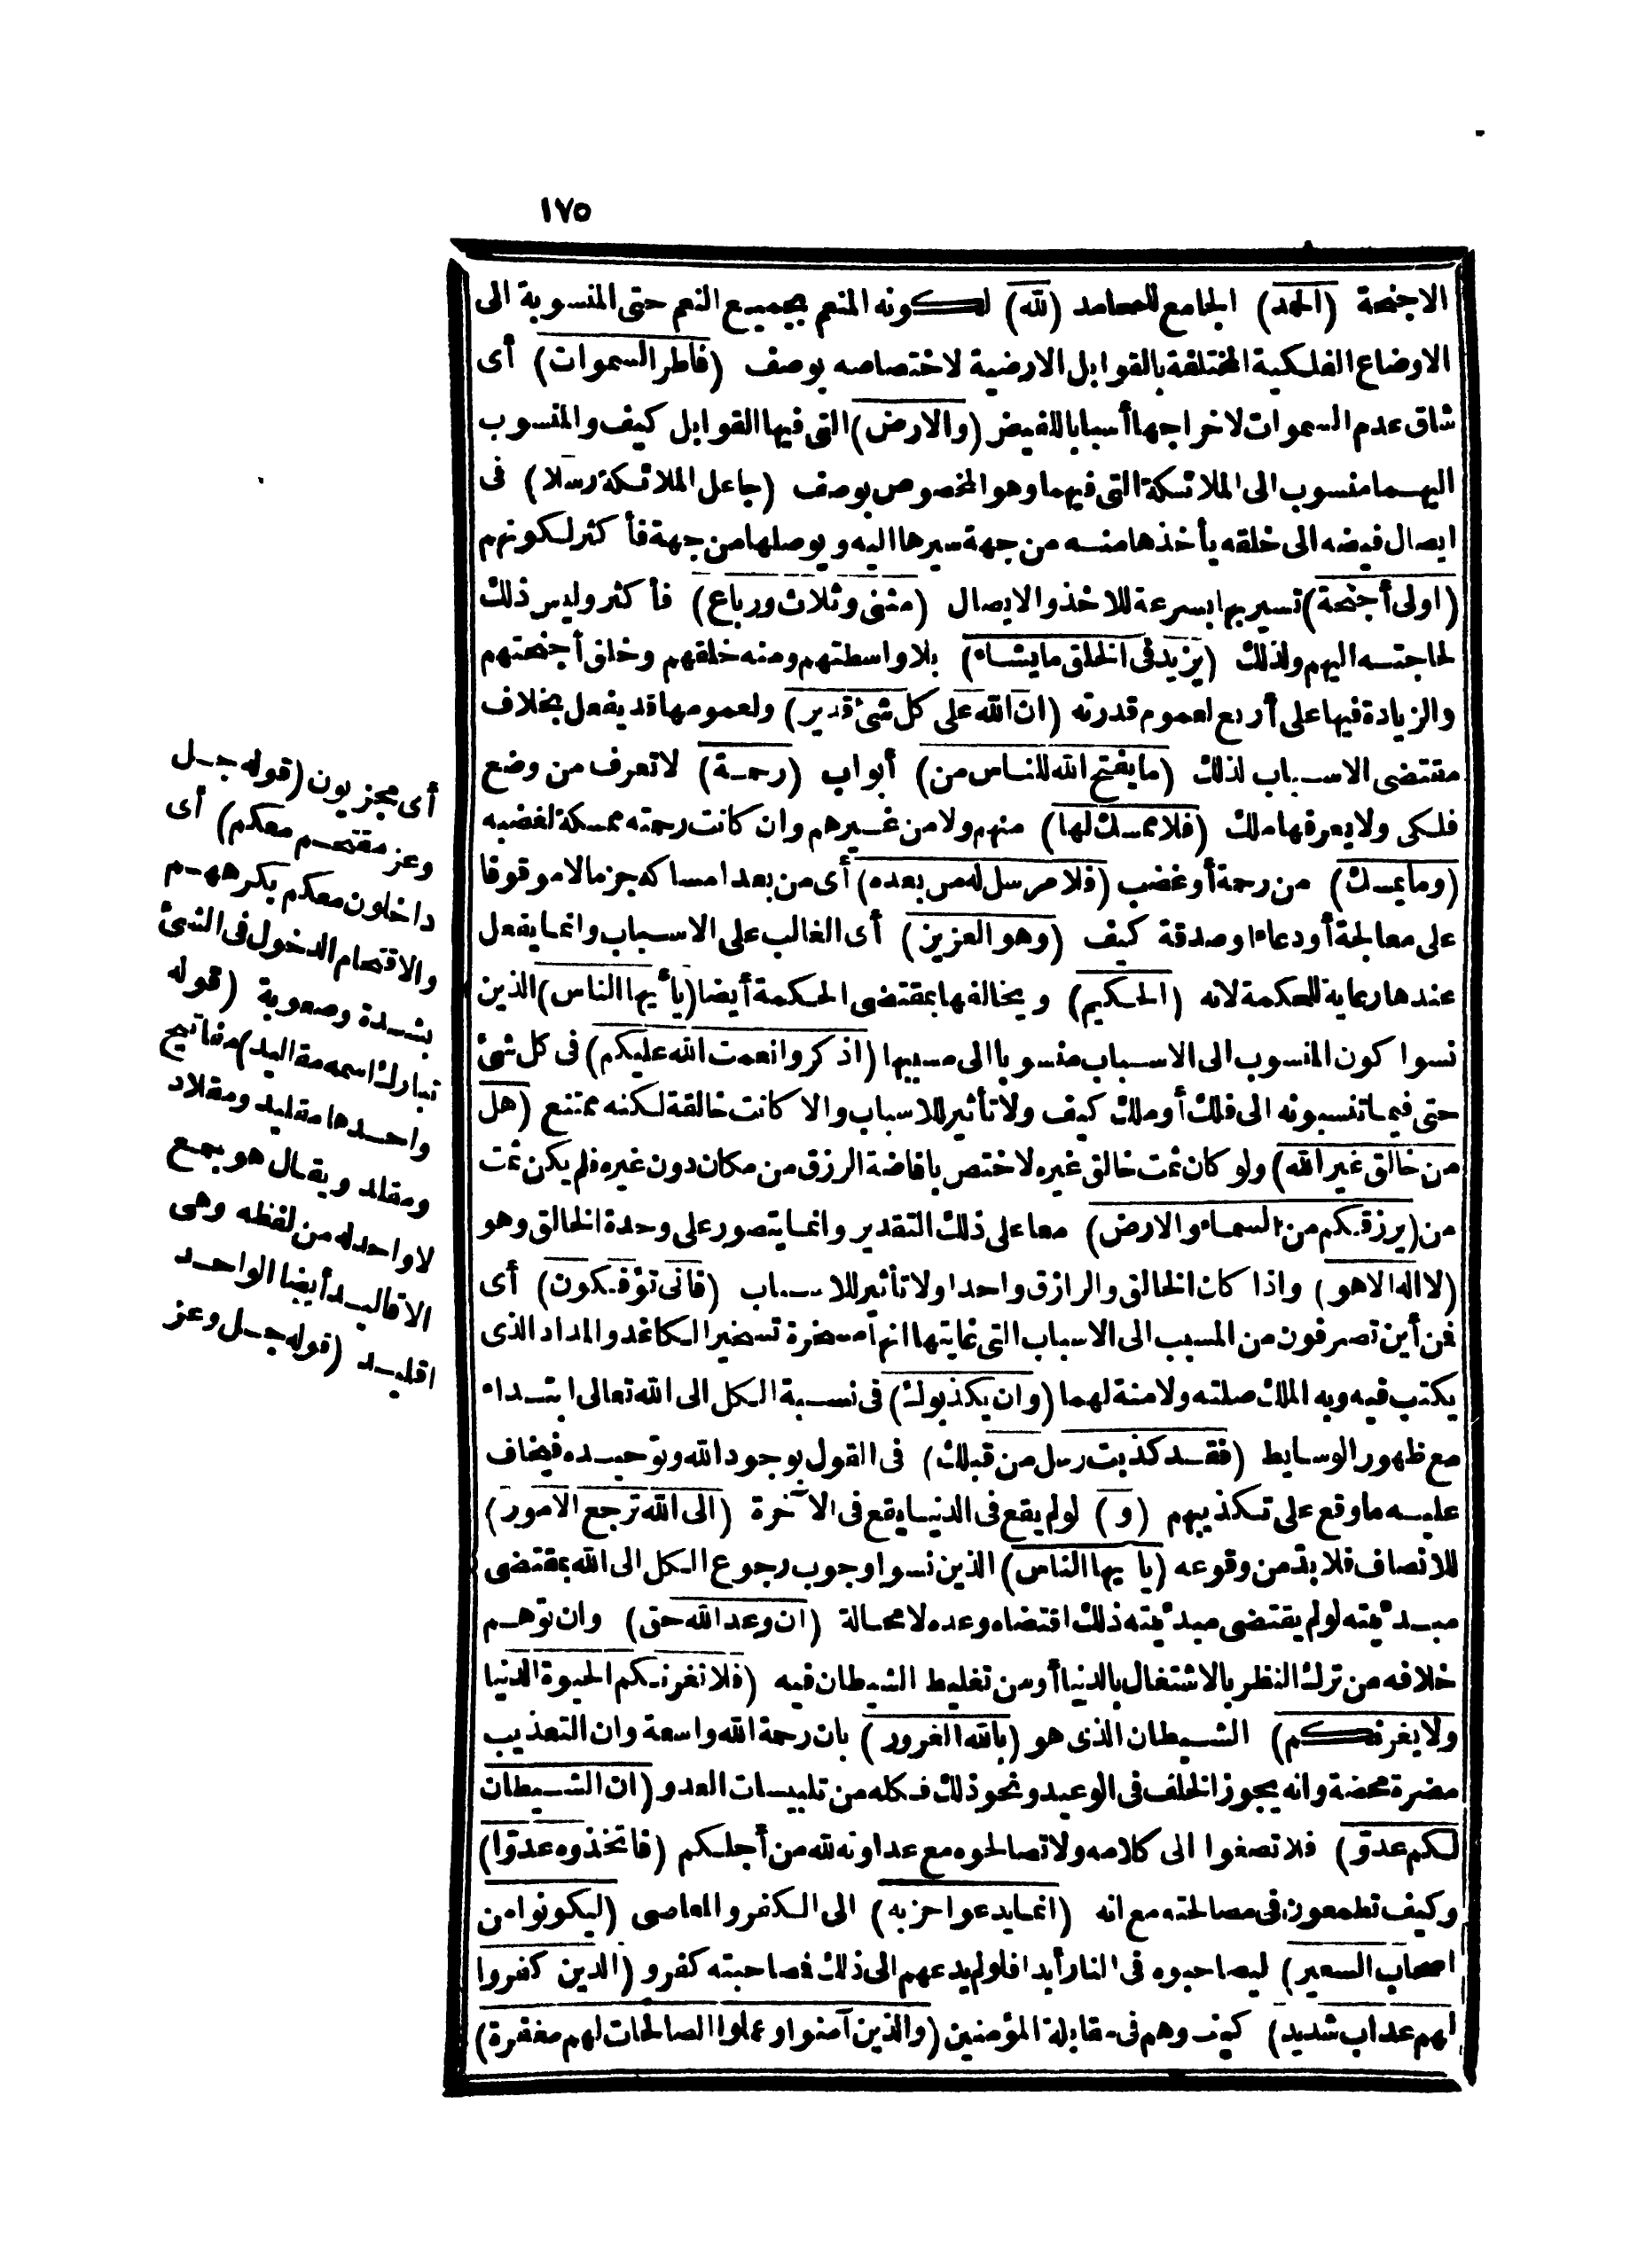 ١٧٥
الاجنحة (الحمد) الجامع للمحامد (لله) لكونه المنعم بجميع النعم حتى المنسوبة الى
الاوضاع الفلكية المختلفة بالقوابل الارضية لاختصاصه بوصف (فاطر السموات) أى
شاق عدم السموات لاخراجها أسبابا للفيض (والارض) التى فيها القوابل كيف والمنسوب
اليهما منسوب الى الملائكة التى فيهما وهو المخصوص بوصف (جاعل الملائكة رسلا) فى
ايصال فيضه الى خلقه يأخذها منه من جهة سيرها اليه ويوصلها من جهة فأكثر لكونهم
(اولى أجنحة) تسير بها بسرعة للاخذ والايصال (مثنى وثلاث ورباع) فأكثر وليس ذلك
لحاجته اليهم ولذلك (يزيد فى الخلق ما يشاء) بلا واسطتهم ومنه خلقهم وخلق أجنحتهم
والزيادة فيها على أربع لعموم قدرته (ان الله على كل شئ قدير) ولعمومها قد يفعل بخلاف
مقتضى الاسباب لذلك (ما يفتح الله للناس من) أبواب (رحمة) لا تعرف من وضع
فلكى ولا يعرفها ملك (فلا ممسك لها) منهم ولا من غيرهم وان كانت رحمته ممسكة لغضبه
(وما يمسك) من رحمة أو غضب (فلا مرسل له من بعده) أى من بعد امساكه جزما لا موقوفا
على معالجة أو دعاء او صدقة كيف (وهو العزيز) أى الغالب على الاسباب وانما يفعل
عندها رعاية للحكمة لانه (الحكيم) ويخالفها بمقتضى الحكمة أيضا (يا أيها الناس) الذين
نسوا كون المنسوب الى الاسباب منسوبا الى مسببها (اذكروا نعمت الله عليكم) فى كل شئ
حتى فيما تنسبونه الى فلك أو ملك كيف ولا تأثير للاسباب والا كانت خالقة لكنه ممتنع (هل
من خالق غير الله) ولو كان ثمت خالق غيره لاختص بافاضة الرزق من مكان دون غيره فلم يكن ثمت
من (يرزقكم من السماء والارض) معا على ذلك التقدير وانما يتصور على وحدة الخالق وهو
(لا اله الا هو) واذا كان الخالق والرازق واحدا ولا تأثير للاسباب (فأنى تؤفكون) أى
فمن أين تصرفون من المسبب الى الاسباب التى غايتها انها مسخرة تسخير الكاغد والمداد الذى
يكتب فيه وبه الملك صلته ولا منة لهما (وان يكذبوك) فى نسبة الكل الى الله تعالى ابتداء
مع ظهور الوسايط (فقد كذبت رسل من قبلك) فى القول بوجود الله وتوحيده فيخاف
عليه ما وقع على تكذيبهم (و) لو لم يقع فى الدنيا يقع فى الآخرة (الى الله ترجع الامور)
للانصاف فلا بد من وقوعه (يا يها الناس) الذين نسوا وجوب رجوع الكل الى الله بمقتضى
مبدئيته لو لم يقتضى مبدئيته ذلك اقتضاه وعده لا محالة (ان وعد الله حق) وان توهم
خلافه من ترك النظر بالاشتغال بالدنيا أو من تغليط الشيطان فيه (فلا تغرنكم الحيوة الدنيا
ولا يغرنكم) الشيطان الذى هو (بالله الغرور) بان رحمة الله واسعة وان التعذيب
مضرة محضة وانه يجوز الخلف فى الوعيد ونحو ذلك فكله من تلبيسات العدو (ان الشيطان
لكم عدو) فلا تصغوا الى كلامه ولا تصالحوه مع عداوته لله من أجلكم (فاتخذوه عدوا)
وكيف تطمعون فى مصالحته مع انه (انما يدعوا حزبه) الى الكفر والمعاصى (ليكونوا من
اصحاب السعير) ليصاحبوه فى النار أبدا فلو لم يدعهم الى ذلك فصاحبته كفر و (الذين كفروا
لهم عذاب شديد) كيف وهم فى مقابلة المؤمنين (والذين آمنوا وعملوا الصالحات لهم مغفرة)
أى مجزيون (قوله جل
وعز مقتحم معكم) أى
داخلون معكم بكرههم
والاقتحام الدخول فى الشئ
بشدة وصعوبة (قوله
تبارك اسمه مقاليد) مفاتيح
واحدها مقليد ومقلاد
ومقلد ويقال هو جمع
لا واحد له من لفظه وهى
الاقاليد أيضا الواحد
اقليد (قوله جل وعز